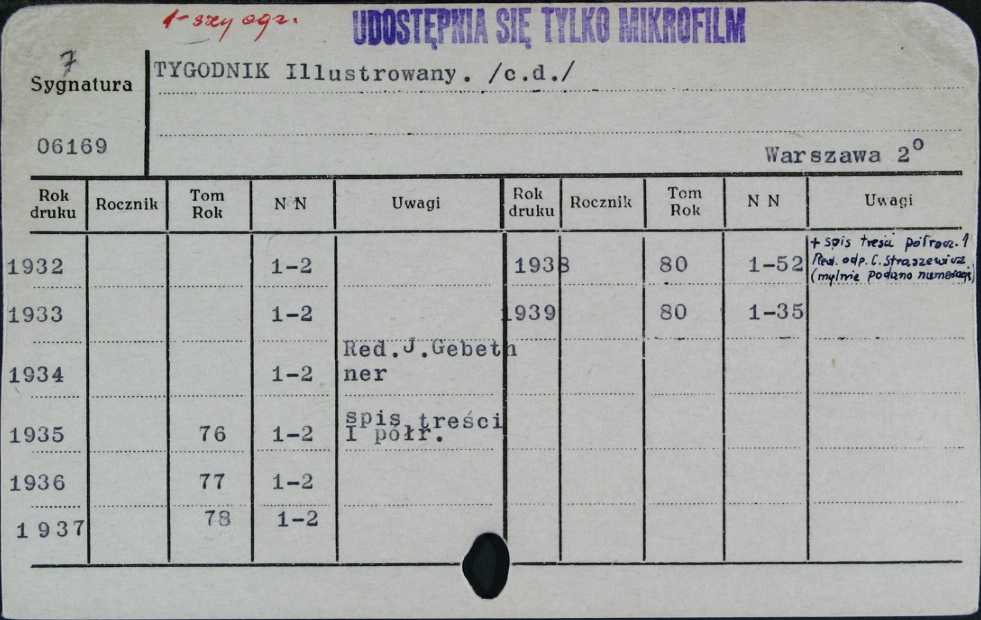 1-szy egz.
UDOSTĘPNIA SIĘ TYLKO MIKROFILM
7
Sygnatura
TYGODNIK Illustrowany. /c.d./
06169
Warszawa 2°
Rok druku Rocznik Tom Rok N N Uwagi Rok druku Rocznik Tom Rok N N Uwagi
1932 1-2 1938 80 1-52 + spis treści półrocz. 1
Red. odp. C. Straszewicz
(mylnie podano numerację)
1933 1-2 1939 80 1-35
1934 1-2 Red.J.Gebeth
ner
1935 76 1-2 spis treści
I półr.
1936 77 1-2
1937 78 1-2